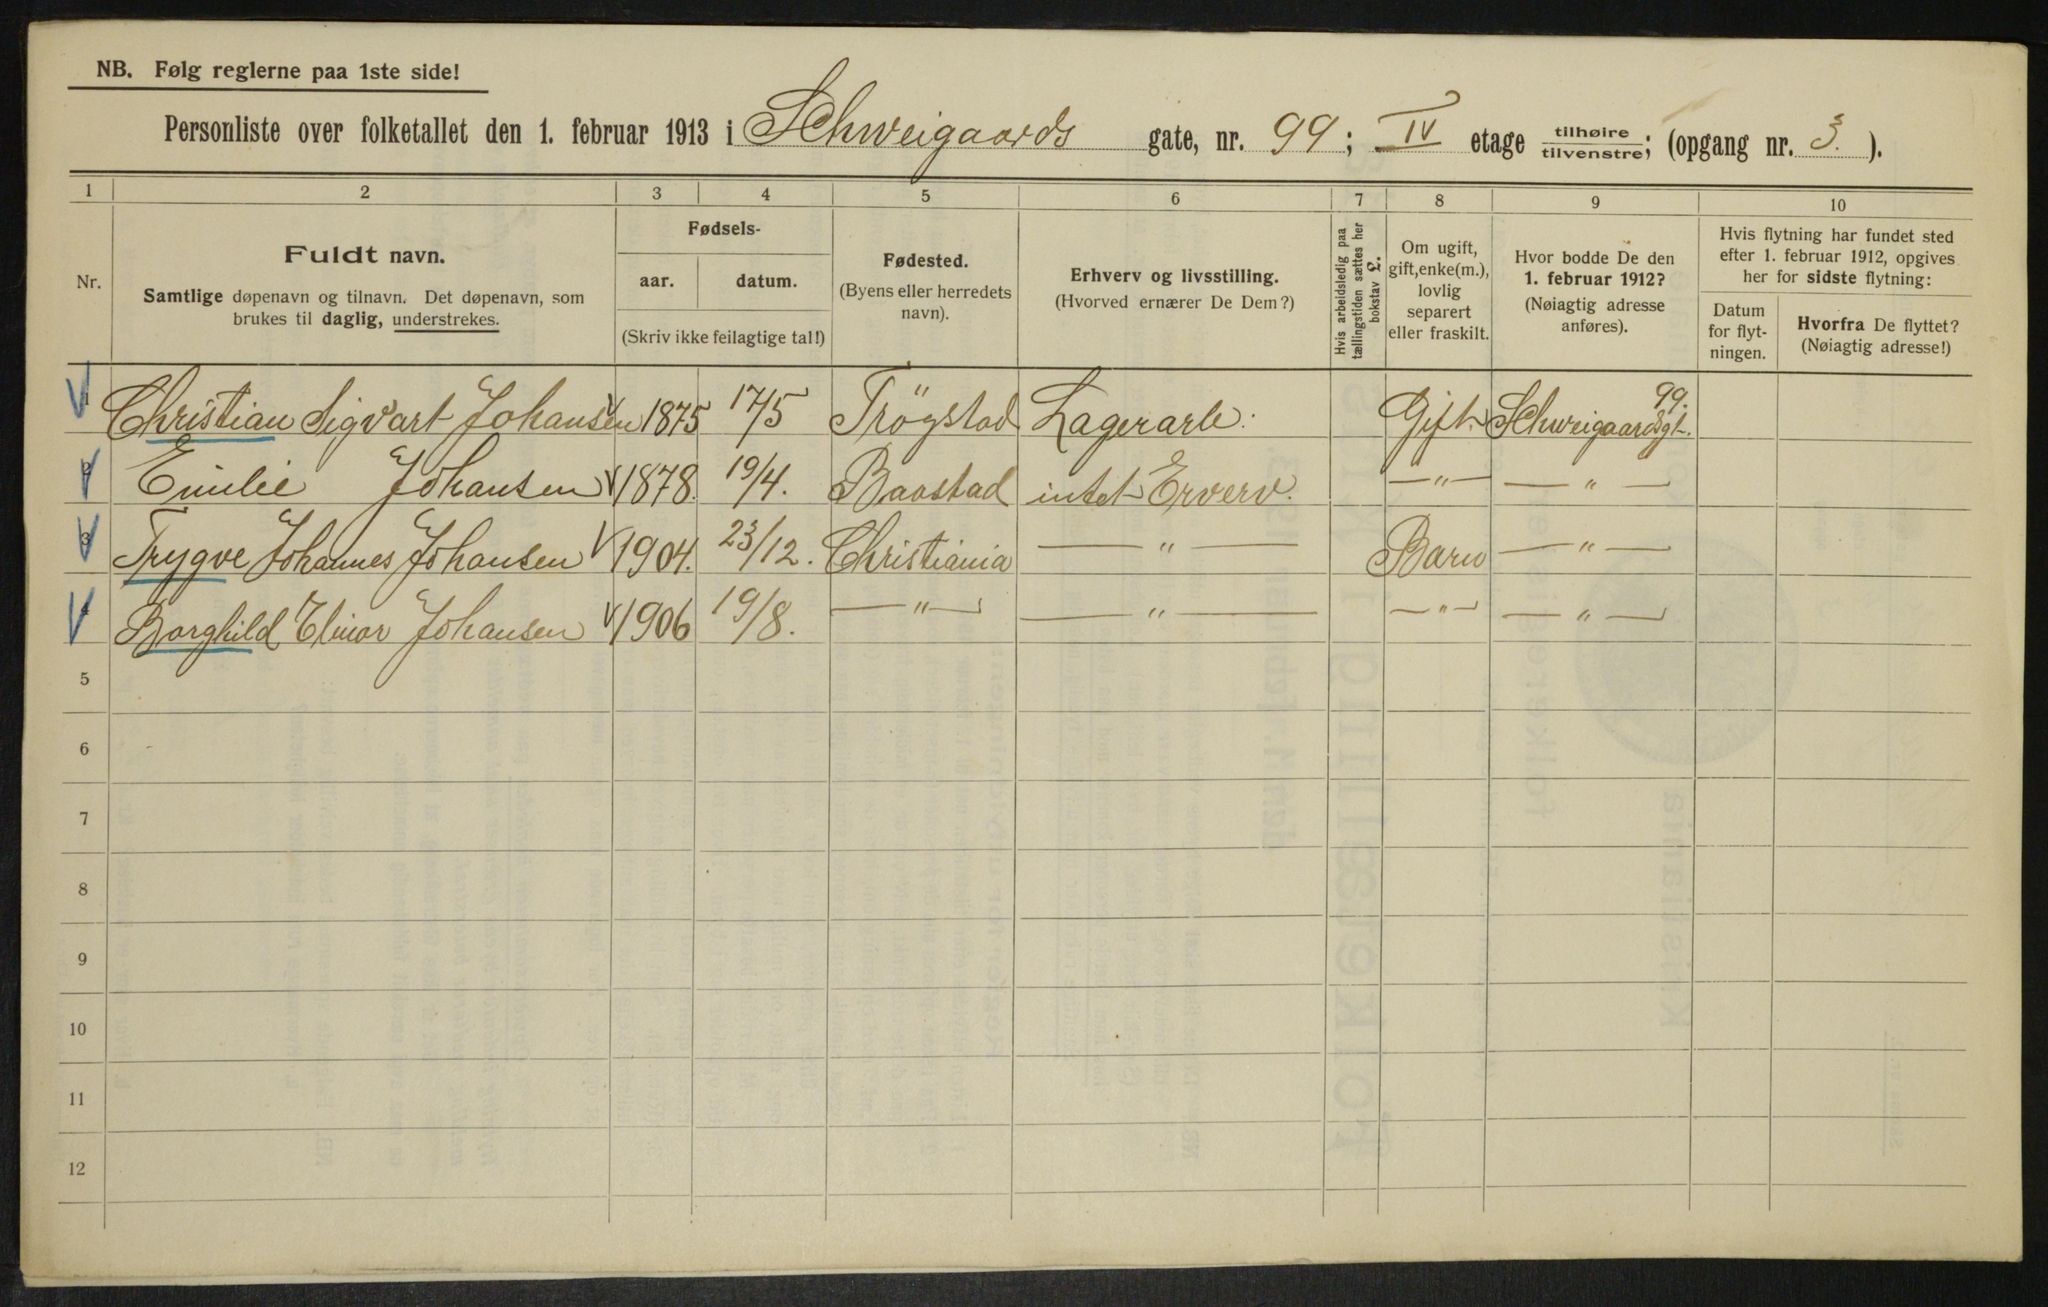 NB. Følg reglerne paa 1ste side!
Personliste over folketallet den 1. februar 1913 i Schweigaards gate, nr. 99; IV etage tilhøire/tilvenstre; (opgang nr. 3.).
1 2 3 4 5 6 7 8 9 10
Nr.
Fuldt navn.
Samtlige døpenavn og tilnavn. Det døpenavn, som
brukes til daglig, understrekes.
Fødsels-
aar.
datum.
(Skriv ikke feilagtige tal!)
Fødested.
(Byens eller herredets
navn).
Erhverv og livsstilling.
(Hvorved ernærer De Dem?)
Hvis arbeidsledig paa
tællingstiden sættes her
bokstav L.
Om ugift,
gift, enke(m.),
lovlig
separert
eller fraskilt.
Hvor bodde De den
1. februar 1912?
(Nøiagtig adresse
anføres).
Hvis flytning har fundet sted
efter 1. februar 1912, opgives
her for sidste flytning:
Datum
for flyt-
ningen.
Hvorfra De flyttet?
(Nøiagtig adresse!)
1 Christian Sigvart Johansen 1875 17/5 Trögstad Lagerarb: Gift Schweigaardsgt. 99.
2 Emilie Johansen 1878. 19/4. Baastad intet Erverv. —"— —"—
3 Trygve Johannes Johansen 1904. 23/12. Christiania —"— Barn —"—
4 Borghild Elinor Johansen 1906 19/8. —"— —"— —"— —"—
5
6
7
8
9
10
11
12